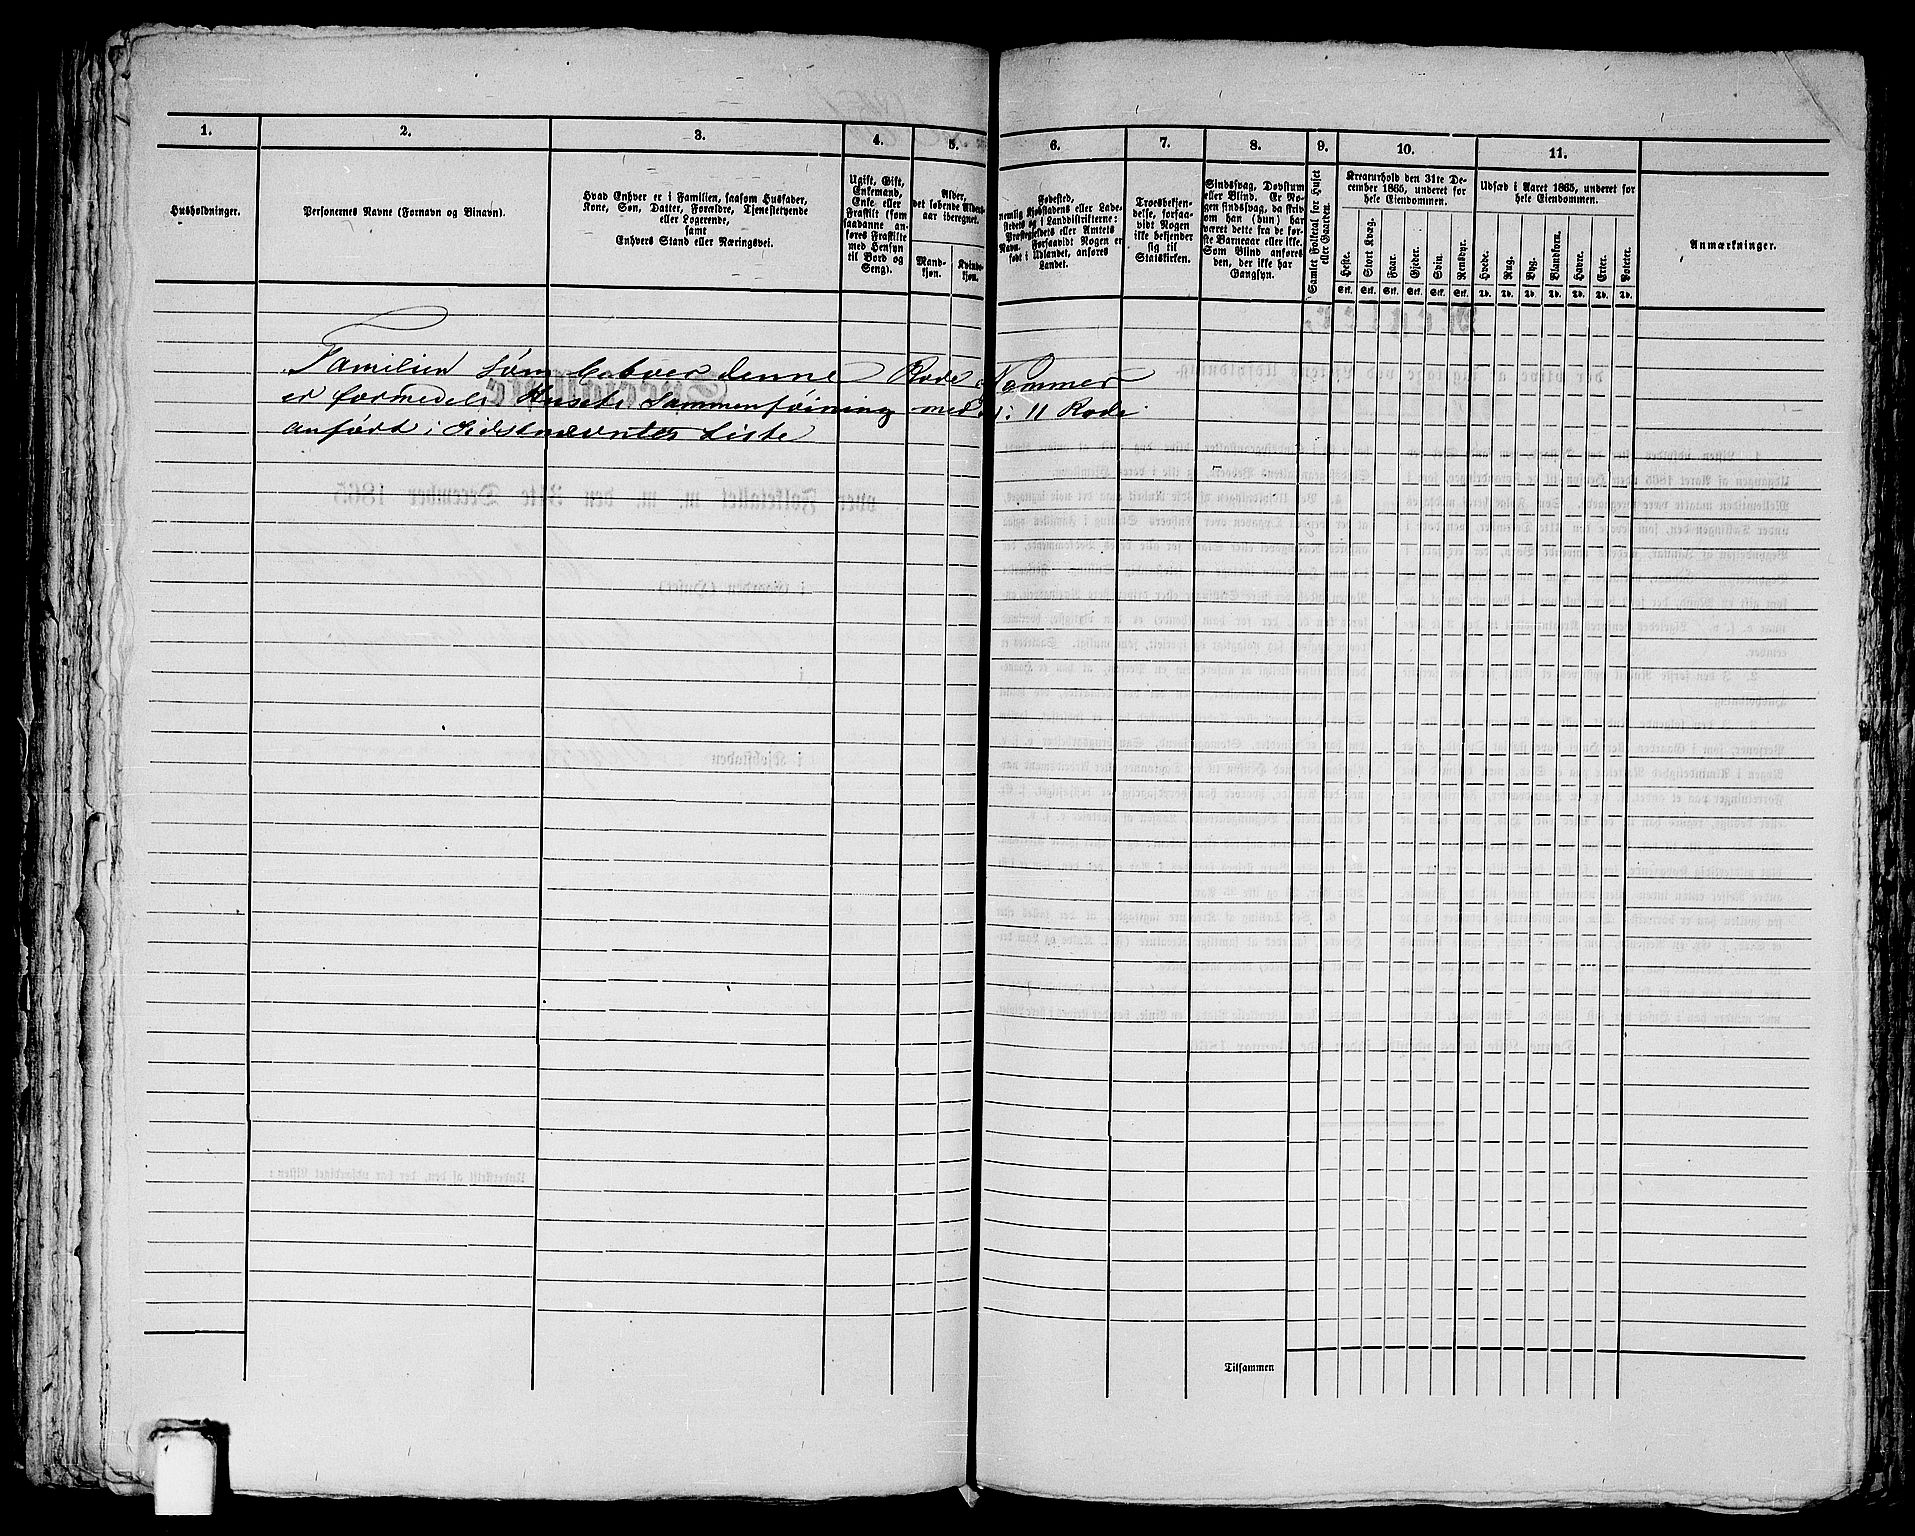 1. 2. 3. 4. 5. 6. 7. 8. 9. 10. 11.
Husholdninger.
Personernes Navne (Fornavn og Binavn).
Hvad Enhver er i Familien, saasom Husfader,
Kone, Søn, Datter, Forældre, Tjenestetyende
eller Logerende,
samt
Enhvers Stand eller Næringsvei.
Ugift, Gift,
Enkemand,
Enke eller
Fraskilt (som
saadanne an-
føres Fraskilte
med Hensyn
til Bord og
Seng).
Alder,
det løbende Alders-
aar iberegnet.
Mand-
kjøn.
Kvinde-
kjøn.
Fødested,
nemlig Kjøbstadens eller Lade-
stedets og i Landdistrikterne:
Præstegjeldets eller Amtets
Navn. Forsaavidt Nogen er
født i Udlandet, anføres
Landet.
Troesbekjen-
delse, forsaa-
vidt Nogen
ikke bekjender
sig til
Statskirken.
Sindssvag, Døvstum
eller Blind. Er No-
gen sindssvag, da skriv
om han (hun) har
været dette fra de før-
ste Barneaar eller ikke.
Som Blind anføres
den, der ikke har
Gangsyn.
Samlet Folketal for Huset
eller Gaarden.
Kreaturhold den 31te De-
cember 1865, underet for
hele Eiendommen.
Heste. Stort Kvæg. Faar. Gjeder. Svin. Rensdyr.
Stk. Stk. Stk. Stk. Stk. Stk.
Udsæd i Aaret 1865, underet for
hele Eiendommen.
Hvede. Rug. Byg. Blandkorn. Havre. Erter. Poteter.
Td. Td. Td. Td. Td. Td. Td.
Anmærkninger.
Familien som beboer denne Rode Nommer
er formedels Husets Sammenføining med N: 11 Rode
anført i sidstnævntes Liste
Tilsammen